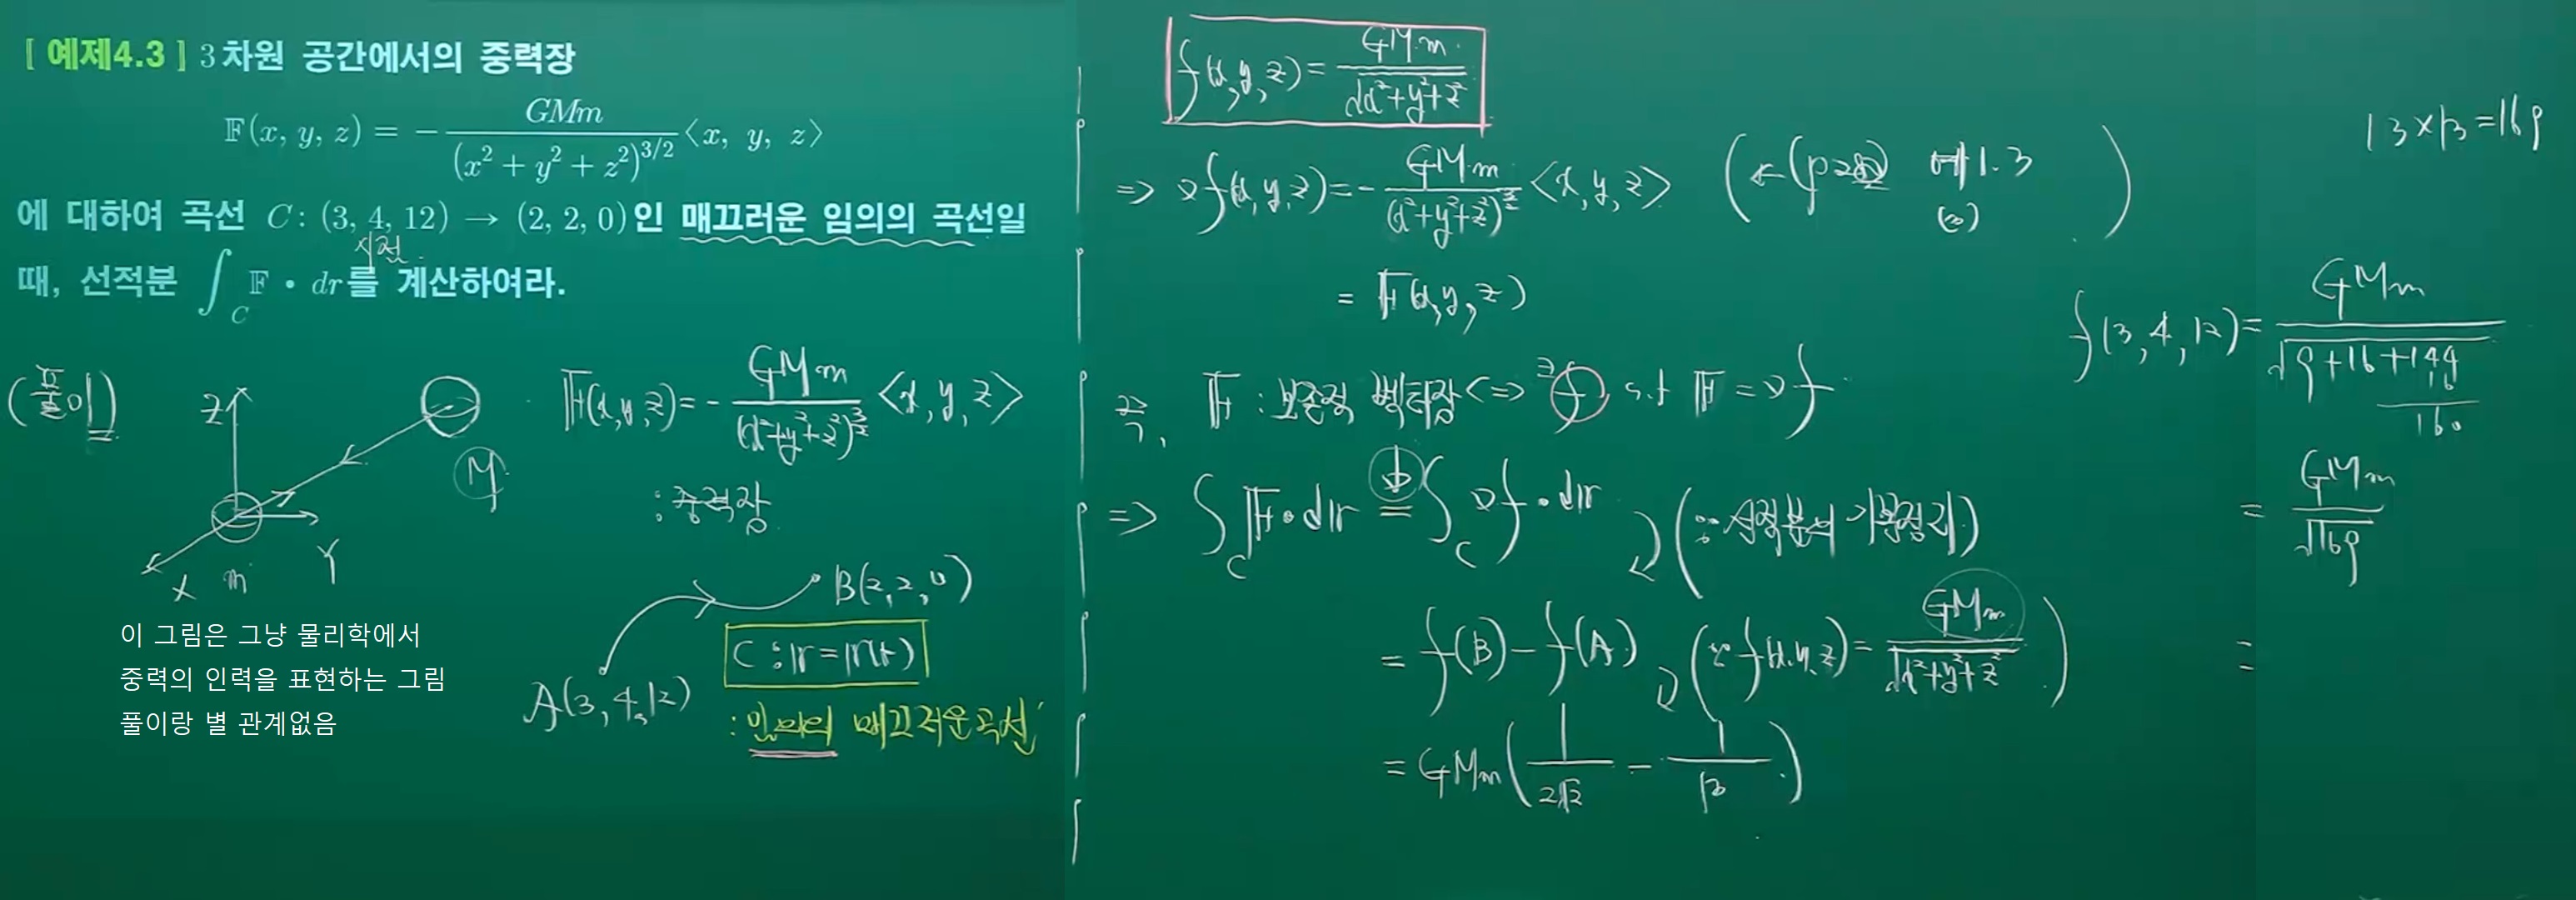 [ 예제4.3 ] 3차원 공간에서의 중력장
𝔽(x, y, z) = − GMm / (x² + y² + z²)^{3/2} ⟨x, y, z⟩
에 대하여 곡선 C : (3, 4, 12) → (2, 2, 0)인 매끄러운 임의의 곡선일
시점
때, 선적분 ∫_C 𝔽 • dr를 계산하여라.
(풀이)
Z
M
X m Y
이 그림은 그냥 물리학에서
중력의 인력을 표현하는 그림
풀이랑 별 관계없음
𝔽(x,y,z) = − GMm / (x²+y²+z²)^{3/2} <x, y, z>
: 중력장
B(2, 2, 0)
A(3, 4, 12)
C : r = r(t)
: 임의의 매끄러운 곡선
f(x,y,z) = GMm / √(x²+y²+z²)
⇒ ∇f(x,y,z) = − GMm / (x²+y²+z²)^{3/2} <x,y,z> 예1.3
(3)
= 𝔽(x,y,z)
즉, 𝔽 : 보존적 벡터장 <=> ∃f s.t 𝔽 = ∇f
⇒ ∫_C 𝔽•dr = ∫_C ∇f•dr (∵ 선적분의 기본정리)
= f(B) − f(A) (∵ f(x,y,z) = GMm / √(x²+y²+z²))
= GMm ( 1/2√2 − 1/13 )
13×13=169
f(3, 4, 12) = GMm / √(9+16+144)
16
160
= GMm / √169
=